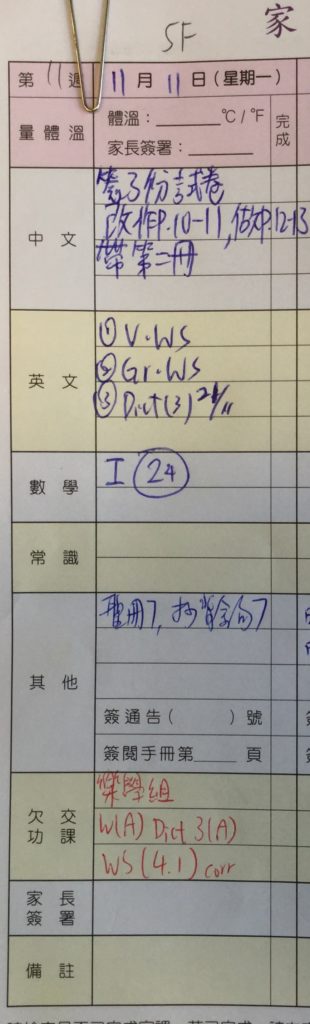 5F
家
第11週 11月11日(星期一)
量體溫 體溫:______°C/°F 完成
家長簽署:______
中文
簽3份試卷
改作P.10-11,做P.12-13
帶第二冊
英文
① V.WS
② Gr.WS
③ Dict(3) 21/11
數學
I 24
常識
其他
聖冊7, 抄背金句7
簽通告( )號
簽閱手冊第____頁
欠交功課
樂學組
W(A) Dict 3(A)
WS(4.1) corr
家長簽署
備註